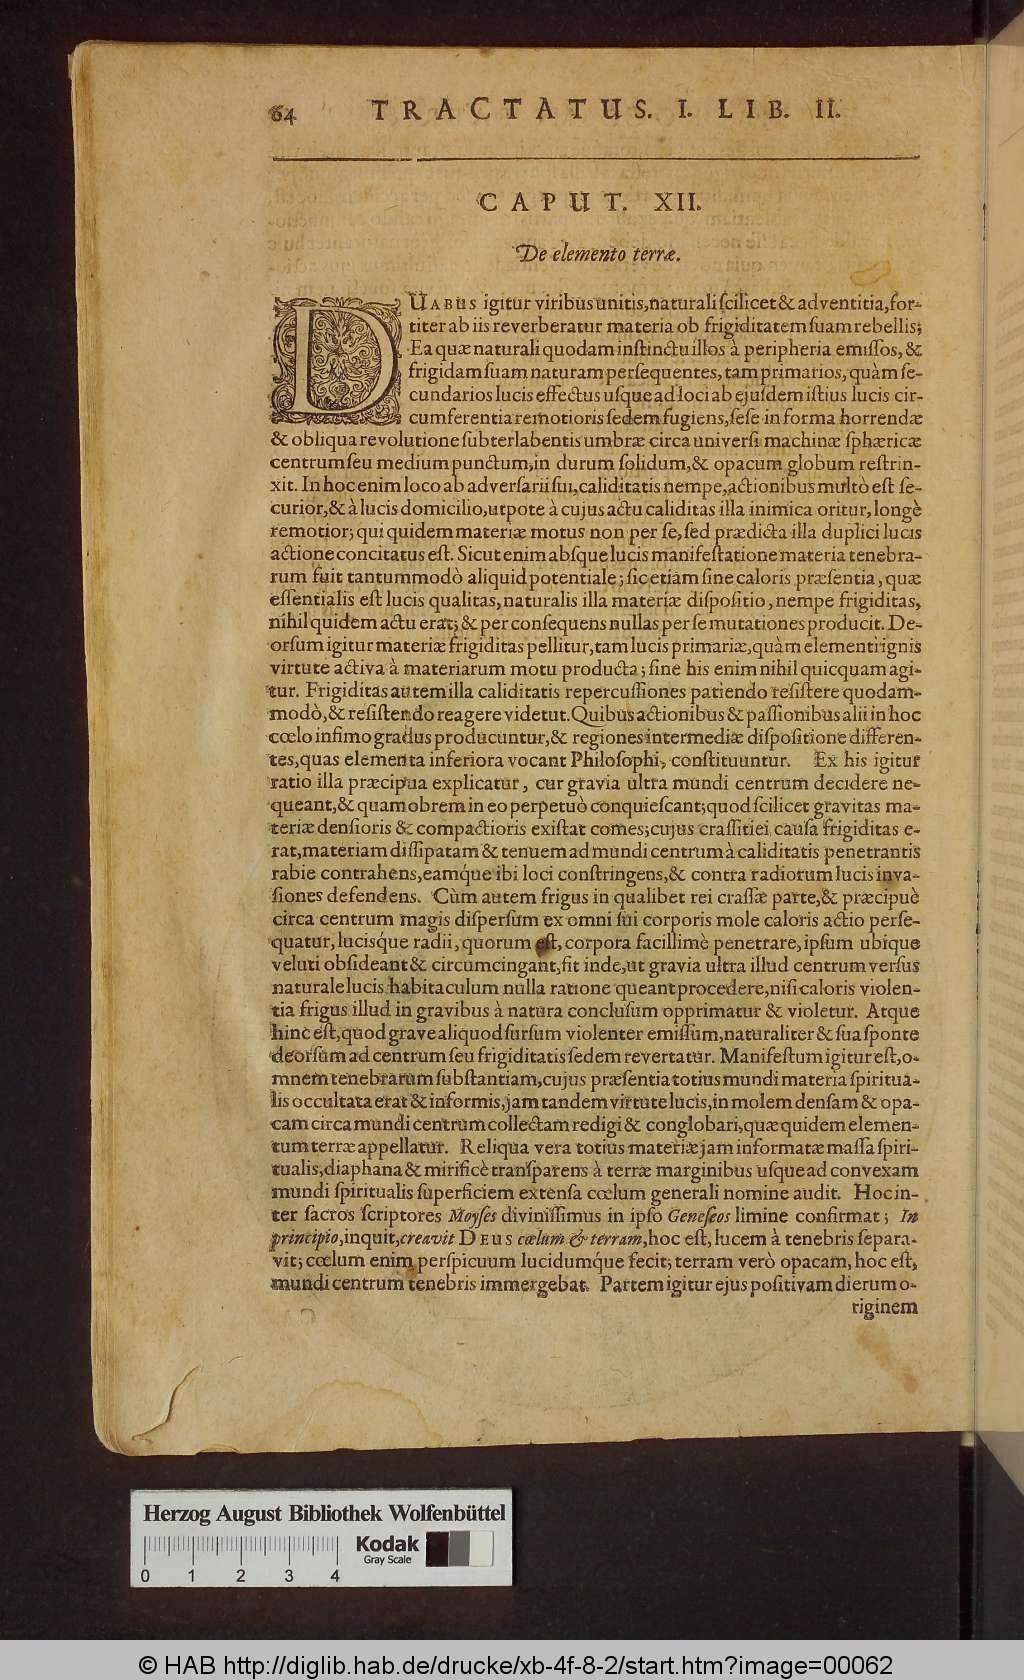 64 TRACTATUS. I. LIB. II.
CAPUT. XII.
De elemento terræ.
DUABUS igitur viribus unitis, naturali ſcilicet & adventitia, for-
titer ab iis reverberatur materia ob frigiditatem ſuam rebellis;
Ea quæ naturali quodam inſtinctu illos à peripheria emiſſos, &
frigidam ſuam naturam perſequentes, tam primarios, quàm ſe-
cundarios lucis effectus uſque ad loci ab ejuſdem iſtius lucis cir-
cumferentia remotioris ſedem fugiens, ſeſe in forma horrendæ
& obliqua revolutione ſubterlabentis umbræ circa univerſi machinæ ſphæricæ
centrum ſeu medium punctum, in durum ſolidum, & opacum globum reſtrin-
xit. In hoc enim loco ab adverſarii ſui, caliditatis nempe, actionibus multò eſt ſe-
curior, & à lucis domicilio, utpote à cujus actu caliditas illa inimica oritur, longè
remotior; qui quidem materiæ motus non per ſe, ſed prædicta illa duplici lucis
actione concitatus eſt. Sicut enim abſque lucis manifeſtatione materia tenebra-
rum fuit tantummodò aliquid potentiale; ſic etiam ſine caloris præſentia, quæ
eſſentialis eſt lucis qualitas, naturalis illa materiæ diſpoſitio, nempe frigiditas,
nihil quidem actu erat; & per conſequens nullas per ſe mutationes producit. De-
orſum igitur materiæ frigiditas pellitur, tam lucis primariæ, quàm elementi ignis
virtute activa à materiarum motu producta; ſine his enim nihil quicquam agi-
tur. Frigiditas autem illa caliditatis repercuſſiones patiendo reſiſtere quodam-
modò, & reſiſtendo reagere videtut. Quibus actionibus & paſſionibus alii in hoc
cœlo infimo gradus producuntur, & regiones intermediæ diſpoſitione differen-
tes, quas elementa inferiora vocant Philoſophi, conſtituuntur. Ex his igitur
ratio illa præcipua explicatur, cur gravia ultra mundi centrum decidere ne-
queant, & quamobrem in eo perpetuò conquieſcant; quod ſcilicet gravitas ma-
teriæ denſioris & compactioris exiſtat comes; cujus craſſitiei cauſa frigiditas e-
rat, materiam diſſipatam & tenuem ad mundi centrum à caliditatis penetrantis
rabie contrahens, eamq́ue ibi loci conſtringens, & contra radiorum lucis inva-
ſiones defendens. Cùm autem frigus in qualibet rei craſſæ parte, & præcipuè
circa centrum magis diſperſum ex omni ſui corporis mole caloris actio perſe-
quatur, lucisq́ue radii, quorum eſt, corpora facillimè penetrare, ipſum ubique
veluti obſideant & circumcingant, fit inde, ut gravia ultra illud centrum verſus
naturale lucis habitaculum nulla ratione queant procedere, niſi caloris violen-
tia frigus illud in gravibus à natura concluſum opprimatur & violetur. Atque
hinc eſt, quod grave aliquod ſurſum violenter emiſſum, naturaliter & ſua ſponte
deorſum ad centrum ſeu frigiditatis ſedem revertatur. Manifeſtum igitur eſt, o-
mnem tenebrarum ſubſtantiam, cujus præſentia totius mundi materia ſpiritua-
lis occultata erat & informis, jam tandem virtute lucis, in molem denſam & opa-
cam circa mundi centrum collectam redigi & conglobari, quæ quidem elemen-
tum terræ appellatur. Reliqua vera totius materiæ jam informatæ maſſa ſpiri-
tualis, diaphana & mirificè tranſparens à terræ marginibus uſque ad convexam
mundi ſpiritualis ſuperficiem extenſa cœlum generali nomine audit. Hoc in-
ter ſacros ſcriptores Moyſes diviniſſimus in ipſo Geneſeos limine confirmat; In
principio, inquit, creavit DEUS cœlum & terram, hoc eſt, lucem à tenebris ſepara-
vit; cœlum enim perſpicuum lucidumq́ue fecit; terram verò opacam, hoc eſt,
mundi centrum tenebris immergebat. Partem igitur ejus poſitivam dierum o-
riginem
Herzog August Bibliothek Wolfenbüttel
Kodak
Gray Scale
0 1 2 3 4
© HAB http://diglib.hab.de/drucke/xb-4f-8-2/start.htm?image=00062